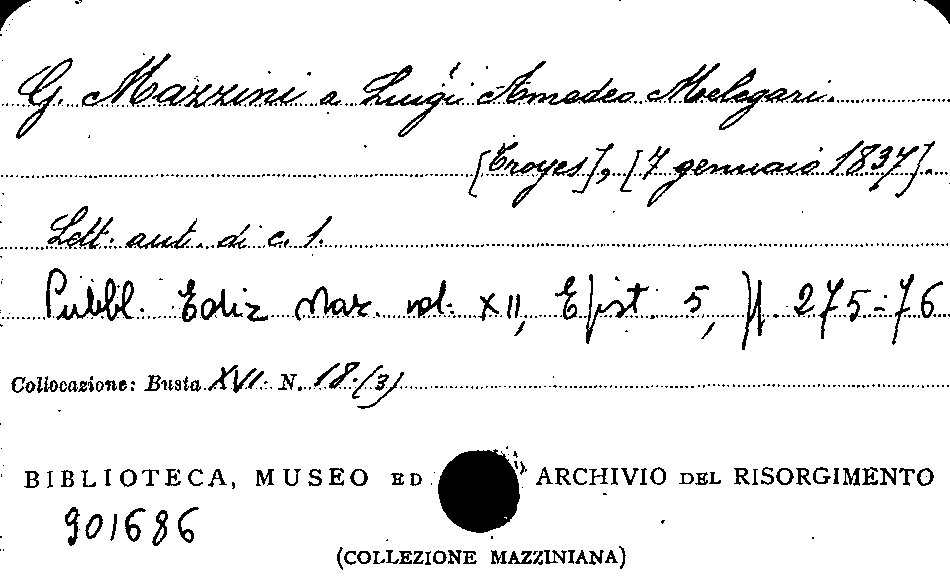 G. Mazzini a Luigi Amedeo Melegari.
[Troyes], [7 gennaio 1837].
Lett. aut. di c. 1.
Pubbl. Ediz Naz. vol. XII, Epist. 5, pp. 275-76
Collocazione: Busta XVI. N. 18.(3)
BIBLIOTECA, MUSEO ED ARCHIVIO DEL RISORGIMENTO
901686
(COLLEZIONE MAZZINIANA)